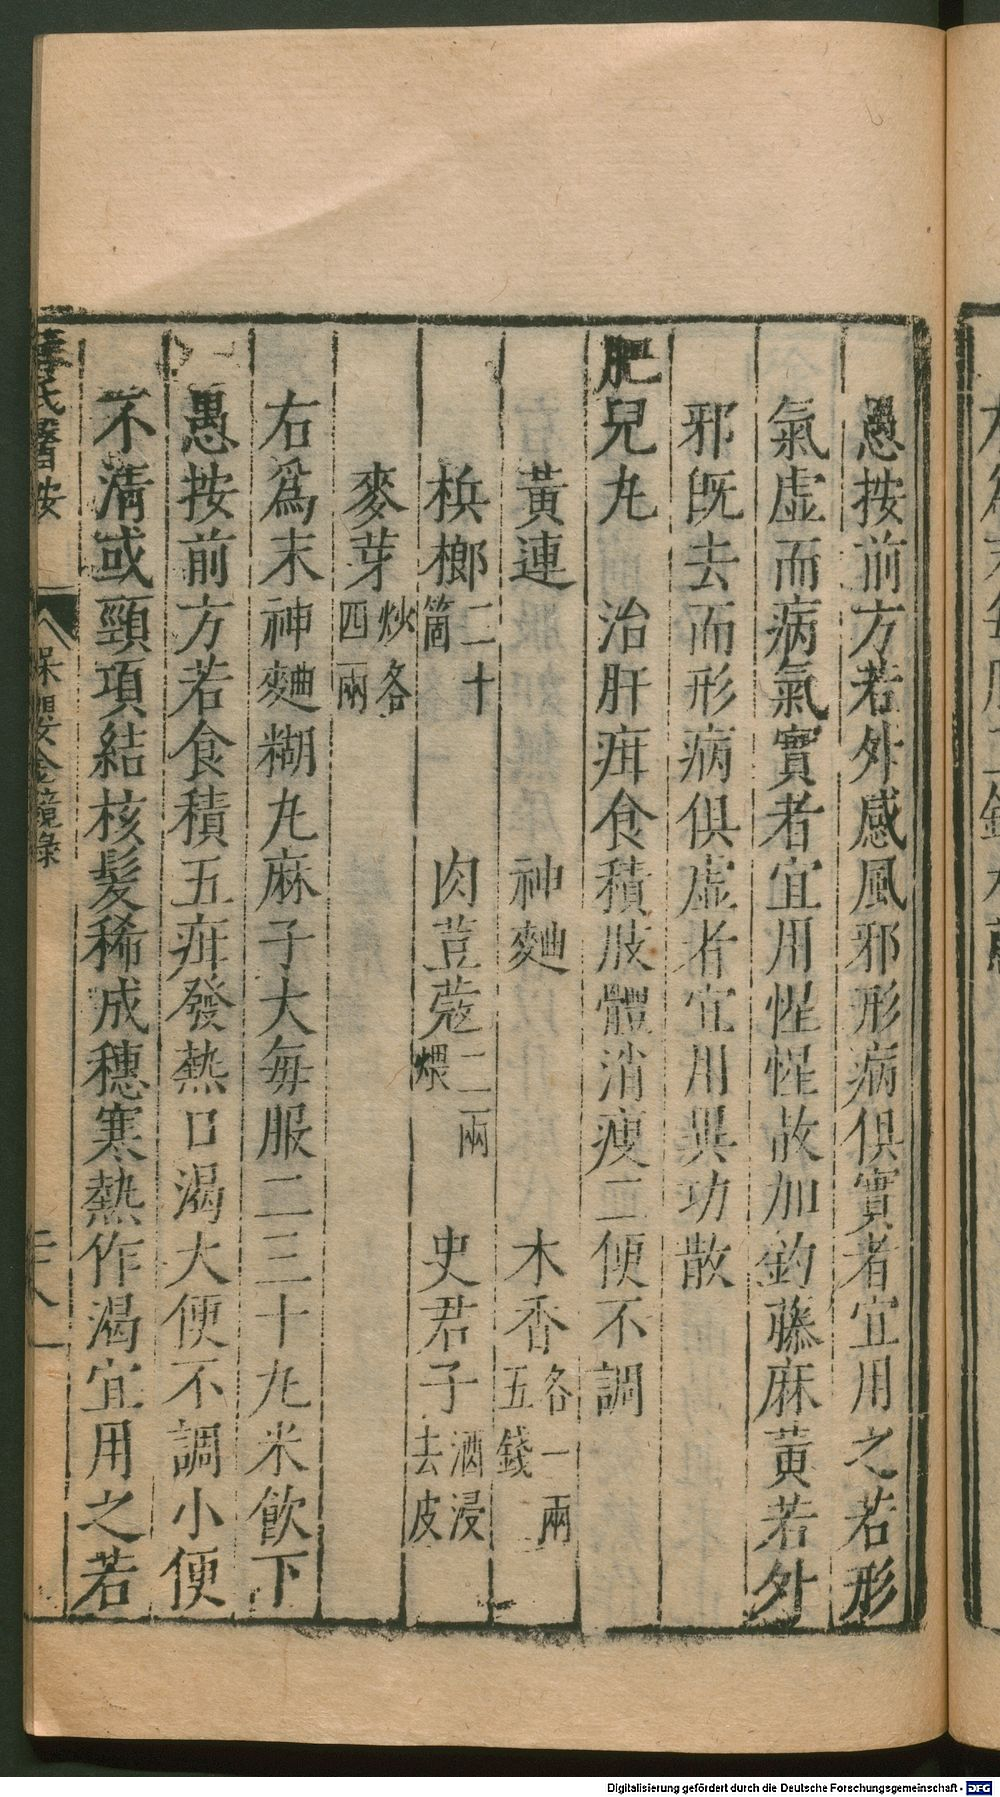 愚按前方若外感風邪形病俱實者宜用之若形
氣虛而病氣實者宜用惺惺散加釣藤麻黃若外
邪既去而形病俱虛者宜用異功散
肥兒丸　治肝疳食積肢體消瘦二便不調
黃連　神麯　木香各一兩五錢
梹榔二十箇　肉荳蔻二兩煨　史君子酒浸去皮
麥芽炒各四兩
右爲末神麯糊丸麻子大每服二三十丸米飲下
愚按前方若食積五疳發熱口渴大便不調小便
不清或頸項結核髮稀成穗寒熱作渴宜用之若
薛氏醫按　保嬰金鏡錄　二十八
Digitalisierung gefördert durch die Deutsche Forschungsgemeinschaft - DFG